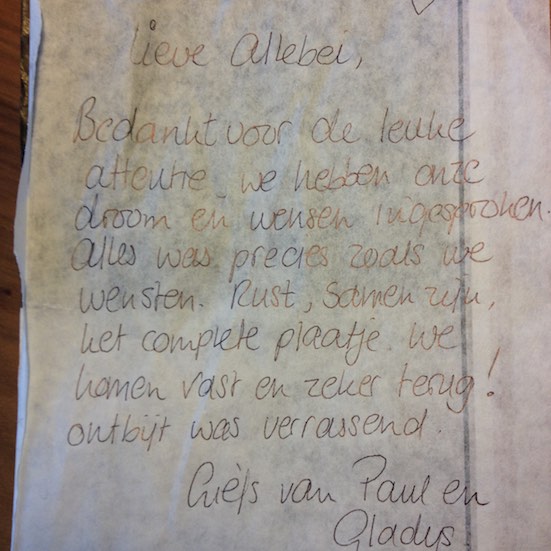 lieve Allebei,
Bedankt voor de leuke
attentie we hebben onze
droom en wensen ingesproken.
Alles was precies zoals we
wensten. Rust, Samen zijn,
het complete plaatje. We
komen vast en zeker terug!
ontbijt was verrassend.
Griejs van Paul en
Gladys.